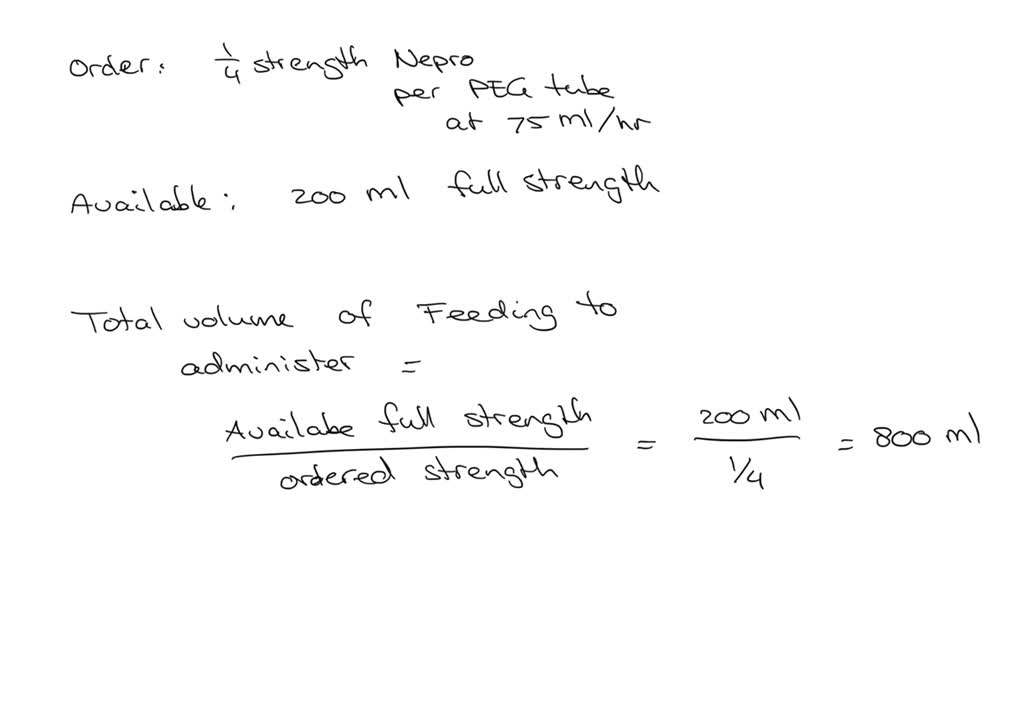 Order: 1/4 strength Nepro
per PEG tube
at 75 ml/hr
Available: 200 ml full strength
Total volume of Feeding to
administer =
Availabe full strength / ordered strength = 200 ml / 1/4 = 800 ml